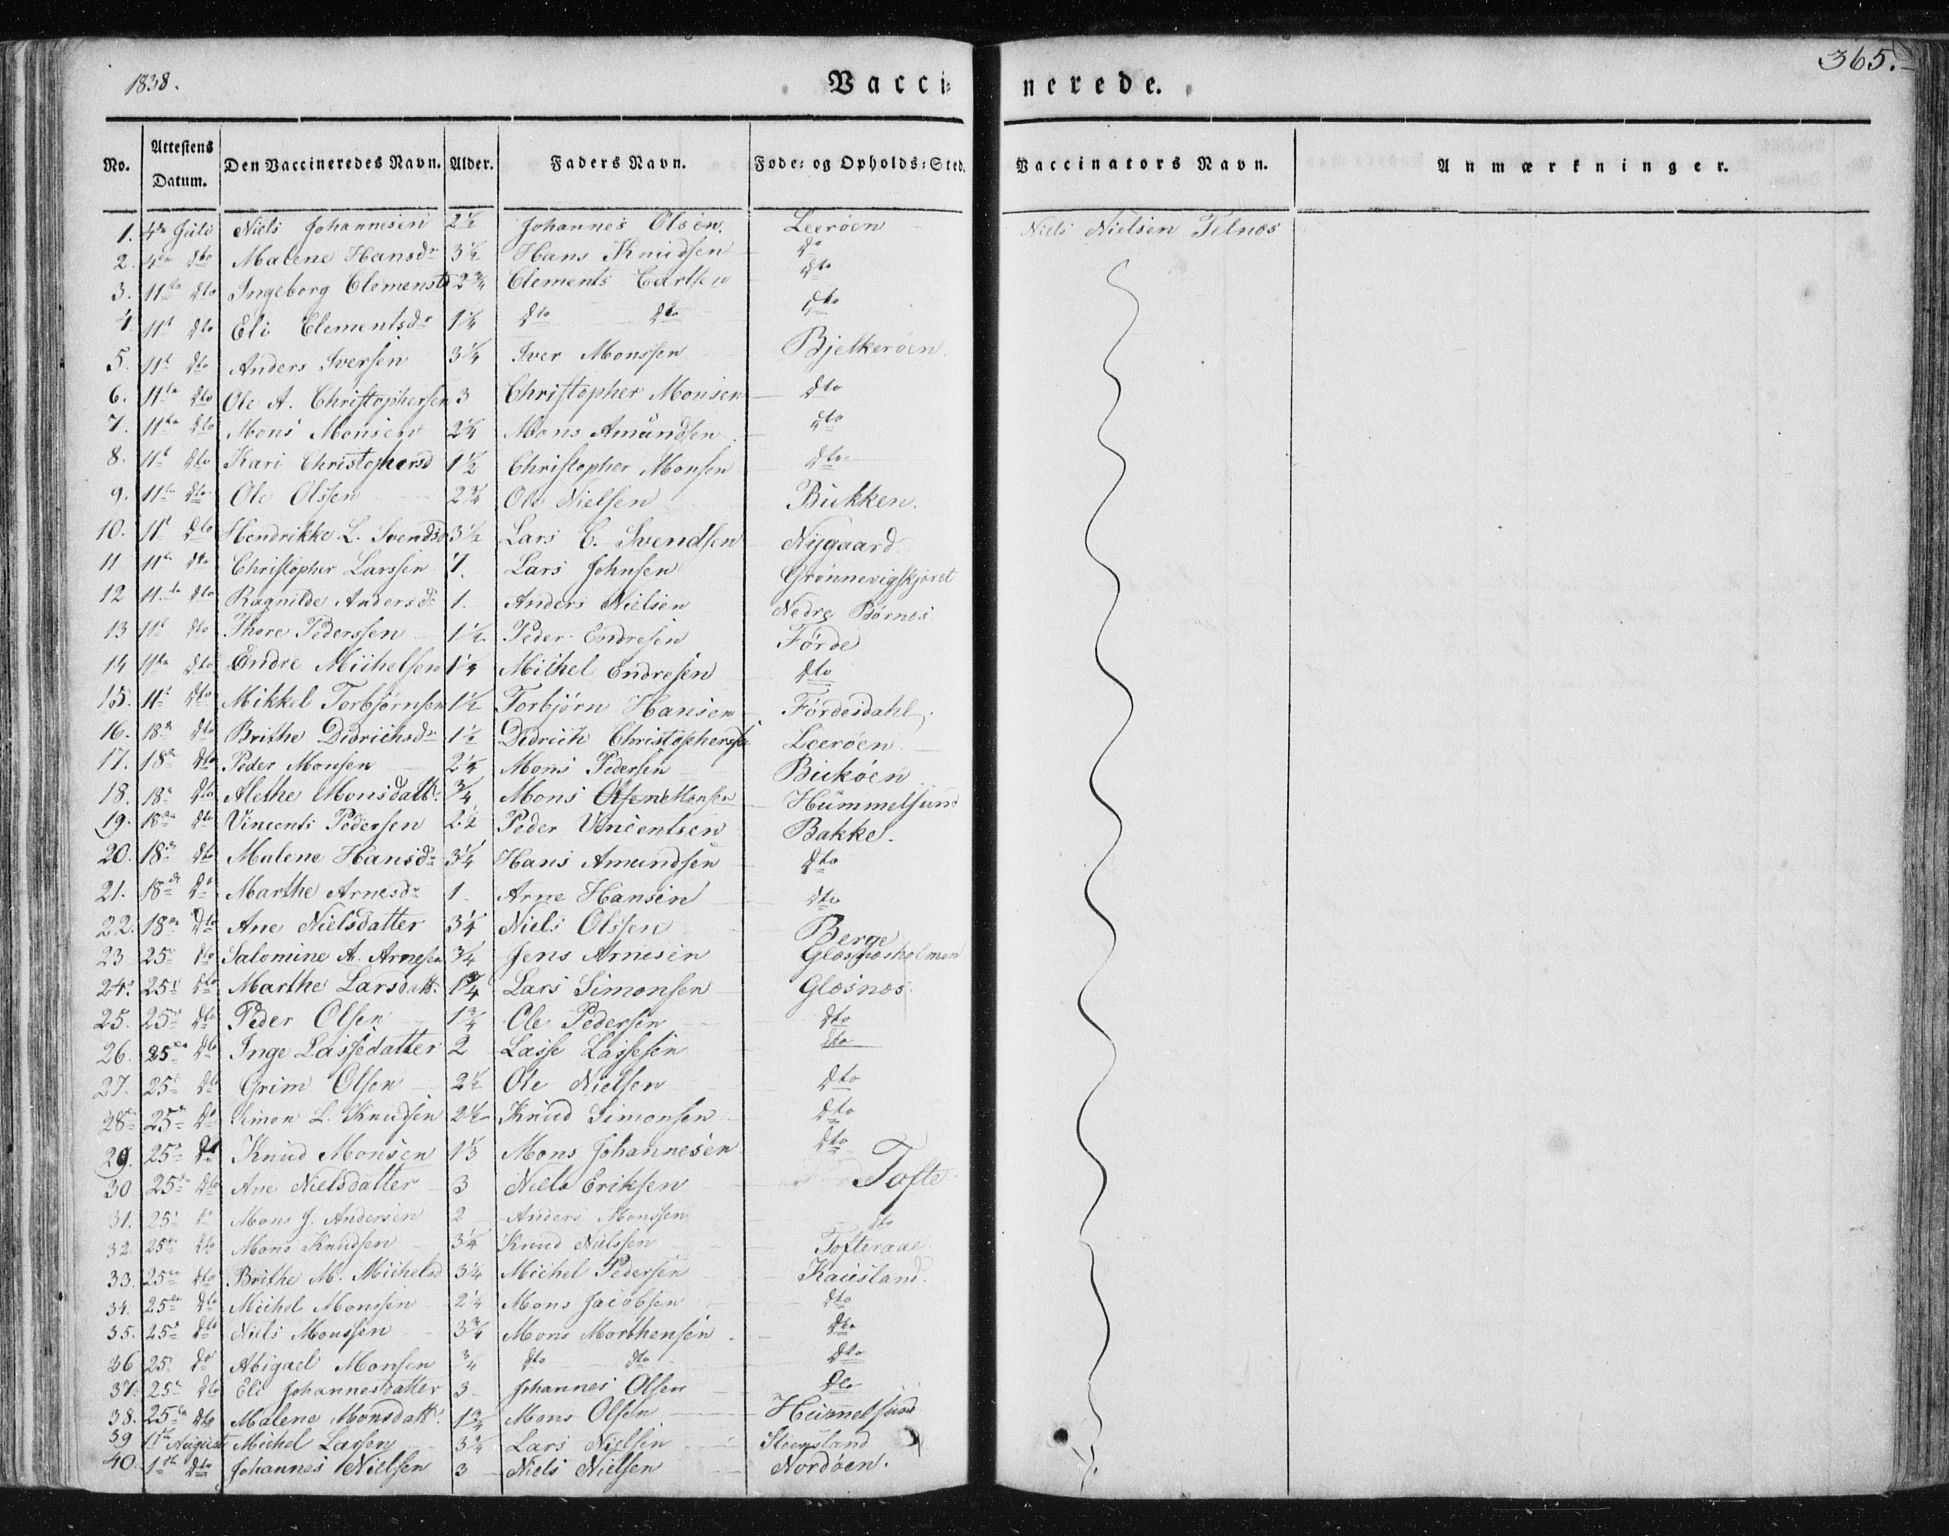 365.
1838.
Vaccinerede.
No. Attestens Datum. Den Vaccineredes Navn. Alder. Faders Navn. Føde- og Opholds-Sted. Vaccinators Navn. Anmærkninger.
1. 4de Juli Niels Johannesen 2½ Johannes Olsen Leerøen Niels Nielsen Telnes
2. 4de dto Malene Hansdr 3½ Hans Knudsen do
3. 11te dto Ingeborg Clemensd 2¾ Clements Carlsen dto
4 11t dto Eli Clementsdr 1¼ dto dto dto
5. 11t dto Anders Iversen 3¼ Iver Monssen Bjelkerøen
6. 11te dto Ole A. Christophersen 3 Christopher Monsen dto
7. 11te dto Mons Monsen 2¼ Mons Amundsen dto
8. 11t dto Kari Christophersd 1½ Christopher Monsen dto
9. 11te dto Ole Olssen 2¾ Ole Nielsen Bukken.
10. 11t dto Hendrikke L. Svendsd 3½ Lars C. Svendsen Nygaard
11 11te dto Christopher Larssen 7. Lars Johnsen Grønnevigskjøret
12 11te dto Ragnilde Andersdr 1. Anders Nielsen Nedre Børnes
13 11t dto Thore Pederssen 1½ Peder Endresen Førde
14 11te dto Endre Michelsen 1¼ Michel Endresen dto
15. 11t dto Mikkel Torbjørnsen 1½ Torbjørn Hansen Fördesdahl
16. 18de dto Brithe Didrichsdr 1½ Didrich Christophersen Leerøen
17. 18de dto Peder Monsen 2¼ Mons Pedersen Bukøen
18. 18de dto Alethe Monsdattr. ¾ Mons Olsen Monsen Hummelsund
19. 18de dto Vincents Pedersen 2½ Peder Vincentsen Bakke.
20. 18de dto Malene Hansdr 3¼ Hans Amundsen dto
21. 18de do Marthe Arnesdr 1. Arne Hansen dto
22. 18de dto Ane Nielsdatter 3¼ Niels Olssen Berge
23 25de dto Salomine A. Arnesen ¾ Jens Arnesen Glæsnæsholmen
24. 25d dto Marthe Larsdattr. 1¾ Lars Simonsen Glæsnæs
25. 25de dto Peder Olsen 1¾ Ole Pedersen dto
26. 25de dto Inge Lassedatter 2 Lasse Lassesen dto
27. 25de dto Grim Olsen 2½ Ole Nielsen dto
28 25de do Simon L. Knudsen 2½ Knud Simonsen dto
29. 25de do Knud Monsen Mons Johannesen dto
30 25de dto Ane Nielsdatter 3 Niels Eriksen Tofte
31. 25d do Mons J. Andersen 2 Anders Monssen dto
32. 25de dto Mons Knudsen 3¼ Knud Nielssen Tofteraae
33. 25de dto Brithe M. Michelsd 3¼ Michel Pedersen Kausland.
34. 25de dto Michel Monssen 2¼ Mons Jacobsen dto
35. 25d dto Niels Monssen 3¾ Mons Morthensen dto
36 25d do Abigael Monsen ¾ dto dto dto
37. 25de dto Eli Johannesdatter 3 Johannes Olsen dto
38. 25de dto Malene Monsdattr. 1¾ Mons Olsen Hummelsund
39 1st August Michel Larsen 3¾ Lars Nielsen Steensland
40. 1st dto Johannes Nielsen 3 Niels Nielsen Nordøen.